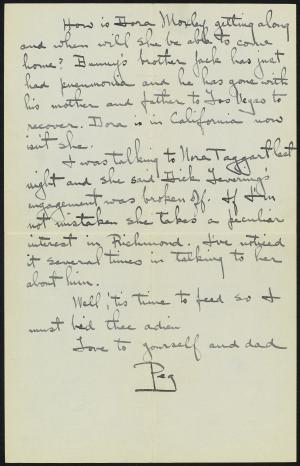 How is Dora Moxley getting along
and when will she be able to come
home? Bunny's brother Jack has just
had pneumonia and he has gone with
his mother and father to Las Vegas to
recover. Dora is in California now
isn't she.
I was talking to Nora Taggart last
night and she said Dick
engagement was broken off. If I'm
not mistaken she takes a peculiar
interest in Richmond. I've noticed
it several times in talking to her
about him.
Well, 'tis time to feed so I
must bid thee adieu
Love to yourself and dad
Peg